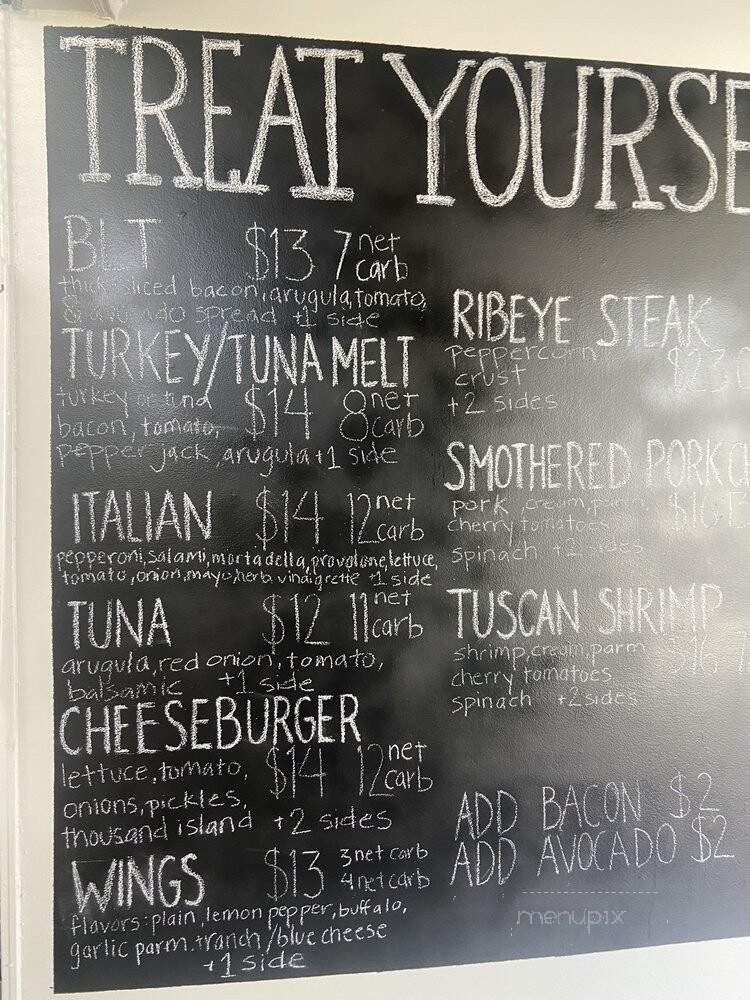 TREAT YOURSE
BLT $13 7 net carb
thick sliced bacon, arugula, tomato,
& avocado spread +1 side
TURKEY/TUNA MELT
turkey or tuna $14 8 net carb
bacon, tomato,
pepper jack, arugula +1 side
ITALIAN $14 12 net carb
pepperoni, salami, mortadella, provolone, lettuce,
tomato, onion, mayo, herb vinaigrette +1 side
TUNA $12 11 net carb
arugula, red onion, tomato,
balsamic +1 side
CHEESEBURGER
lettuce, tomato, $14 12 net carb
onions, pickles,
thousand island +2 sides
WINGS $13 3 net carb
4 net carb
flavors: plain, lemon pepper, buffalo,
garlic parm. +ranch/blue cheese
+1 side
RIBEYE STEAK
peppercorn
crust
+2 sides
SMOTHERED PORK
pork, cream,
cherry tomato,
spinach +2 sides
TUSCAN SHRIMP
shrimp, cream, parm $16
cherry tomatoes
spinach +2 sides
ADD BACON $2
ADD AVOCADO $2
menupix